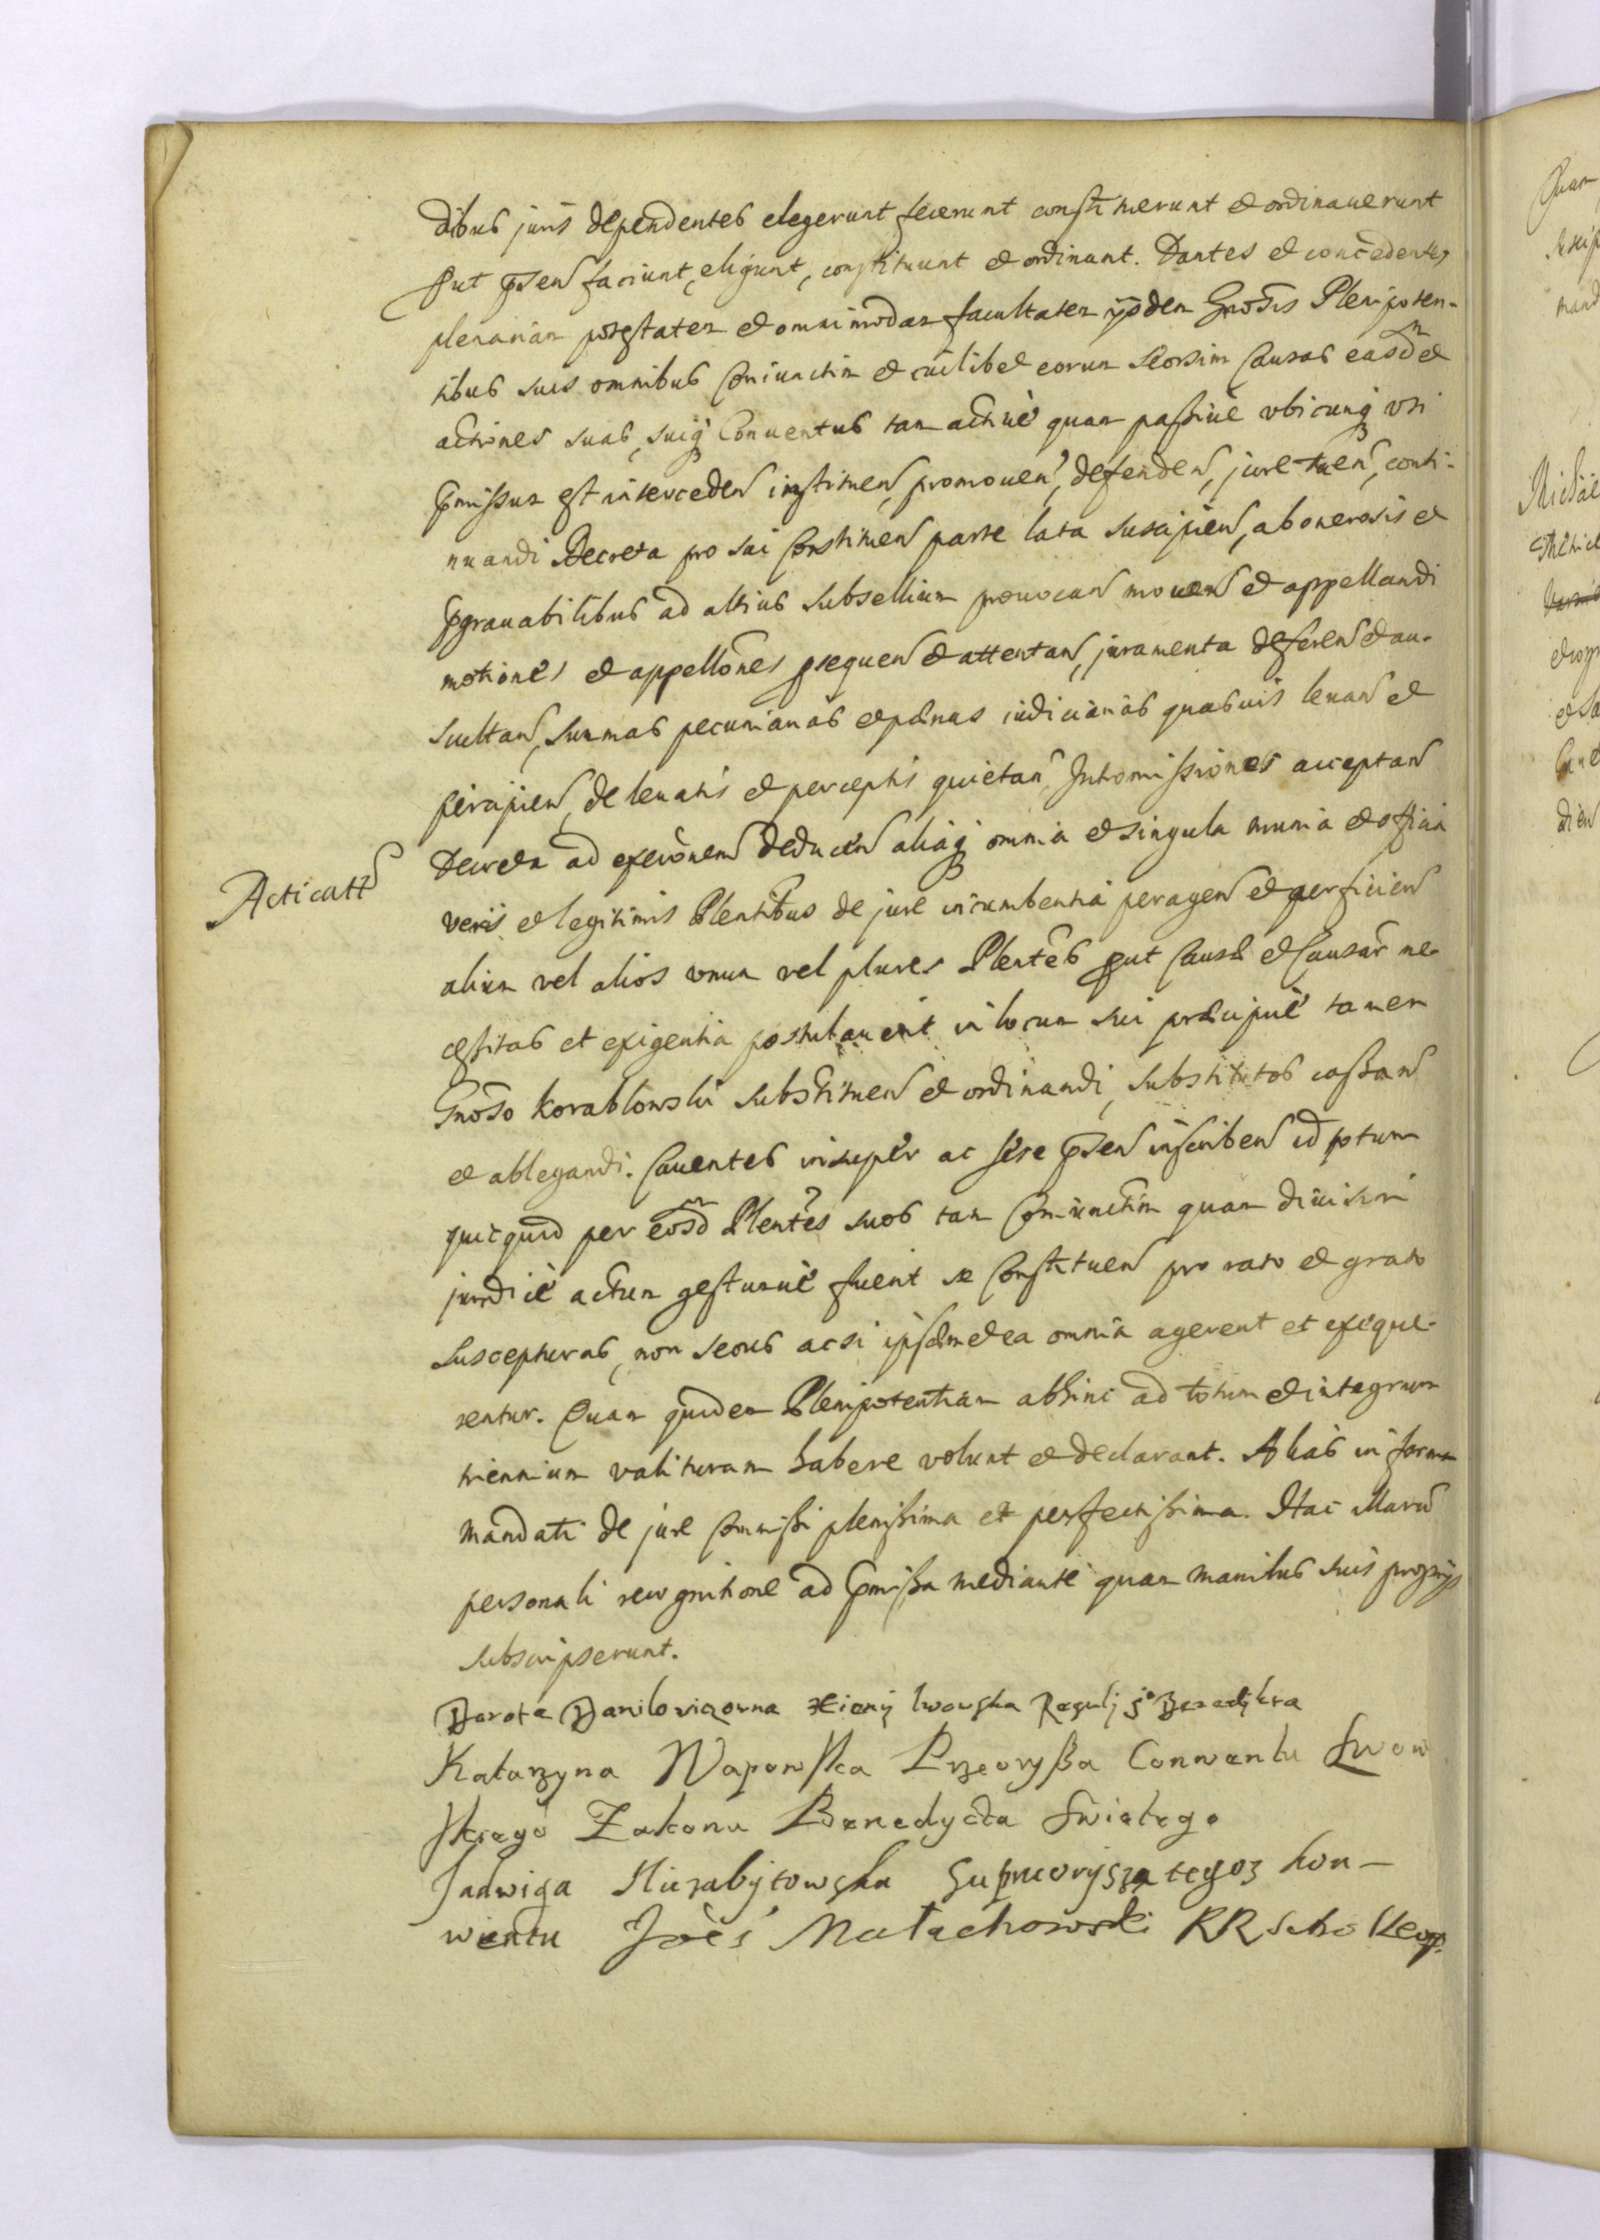 dibus juris dependentes elegerunt fecerunt constituerunt et ordinaverunt
Put pñsen faciunt, eligunt, constituunt et ordinant. Dantes et concedentes
plenariam potestatem et omnimodam facultatem ijsdem Gnosis Plenipoten-
tibus suis omnibus coniunctim et cuilibet eorum seorsim causas easdm et
actiones suas, suiq Conventus tam active quam passive ubicunq usi
pmissum est interceden instituen, promoven, defenden, jure tuen, conti-
nuandi Decreta pro sui constituen parte lata suscipien, ab onerosis et
pgravabilibus ad altius subsellium provocan moven et appellandi
motiones et appellones psequen et attentan, juramenta deferen et au-
scultan, summas pecuniarias et pænas iudiciarias quasvis levan et
percipien, de levatis et perceptis quietan Intromissiones acceptan
Decreta ad execonem deducen aliaq omnia et singula munia et officia
Acticatt
veris et legitimis Plentibus de jure incumbentia peragen et perficien
alium vel alios unum vel plures Plentes put causæ et causar ne-
cessitas et exigentia postulaverit in locum sui præcipue tamen
Gnoso Korablowski substituen et ordinandi, substitutos cassan
et ablegandi. Caventes insuper ac sese pñsen inscriben id totum
quicquid per eosdm Plentes suos tam coniunctim quam divisim
juridice actum gestumve fuerit se constituen pro rato et grato
suscepturas, non secus ac si ipsæmet ea omnia agerent et exeque-
rentur. Quam quidem Plenipotentiam abhinc ad totum et integrum
triennium valituram habere volunt et declarant. Alias in forma
mandati de jure commissi plenissima et perfectissima. Hac
personali recognitione ad pmissa mediante quam manibus suis proprijs
subscripserunt.
Dorota Daniłowiczowna Xieni lwowska Reguli S° Benedykta
Katarzyna Wapowska Przeorysza Conwentu Lwow
skiego Zakonu Benedycta Swiętego
Jadwiga Niezabytowska Suprzeorysza tegoz kon-
wentu Joes Małachowski RR